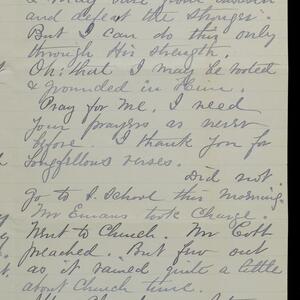 & may
and defeat the stronger.
But I can do this only
through His strength.
Oh: that I may be rooted
& grounded in Him.
Pray for me. I need
your prayers as never
before. I thank you for
Longfellows verses.
Did not
go to S. School this morning.
Mr Emans took Charge.
Went to Church. Mr Cott
preached. But few out
as it rained quite a little
about Church time.